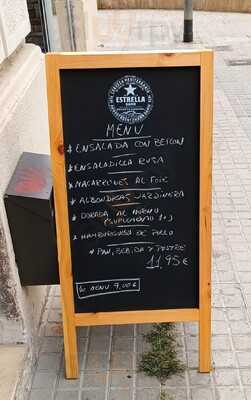 CERVEZA MEDITERRÁNEA
ESTRELLA
DAMM
MENU
* ENSALADA CON BEICON
* ENSALADILLA RUSA
* MACARRONES AL FOIE
* ALBONDIGAS JARDINERA
* DORADA AL HORNO
(SUPLEMENTO 1€)
* HAMBURGUESA DE POLLO
* PAN, BEBIDA Y POSTRE
11,95€
MENU 9,00€